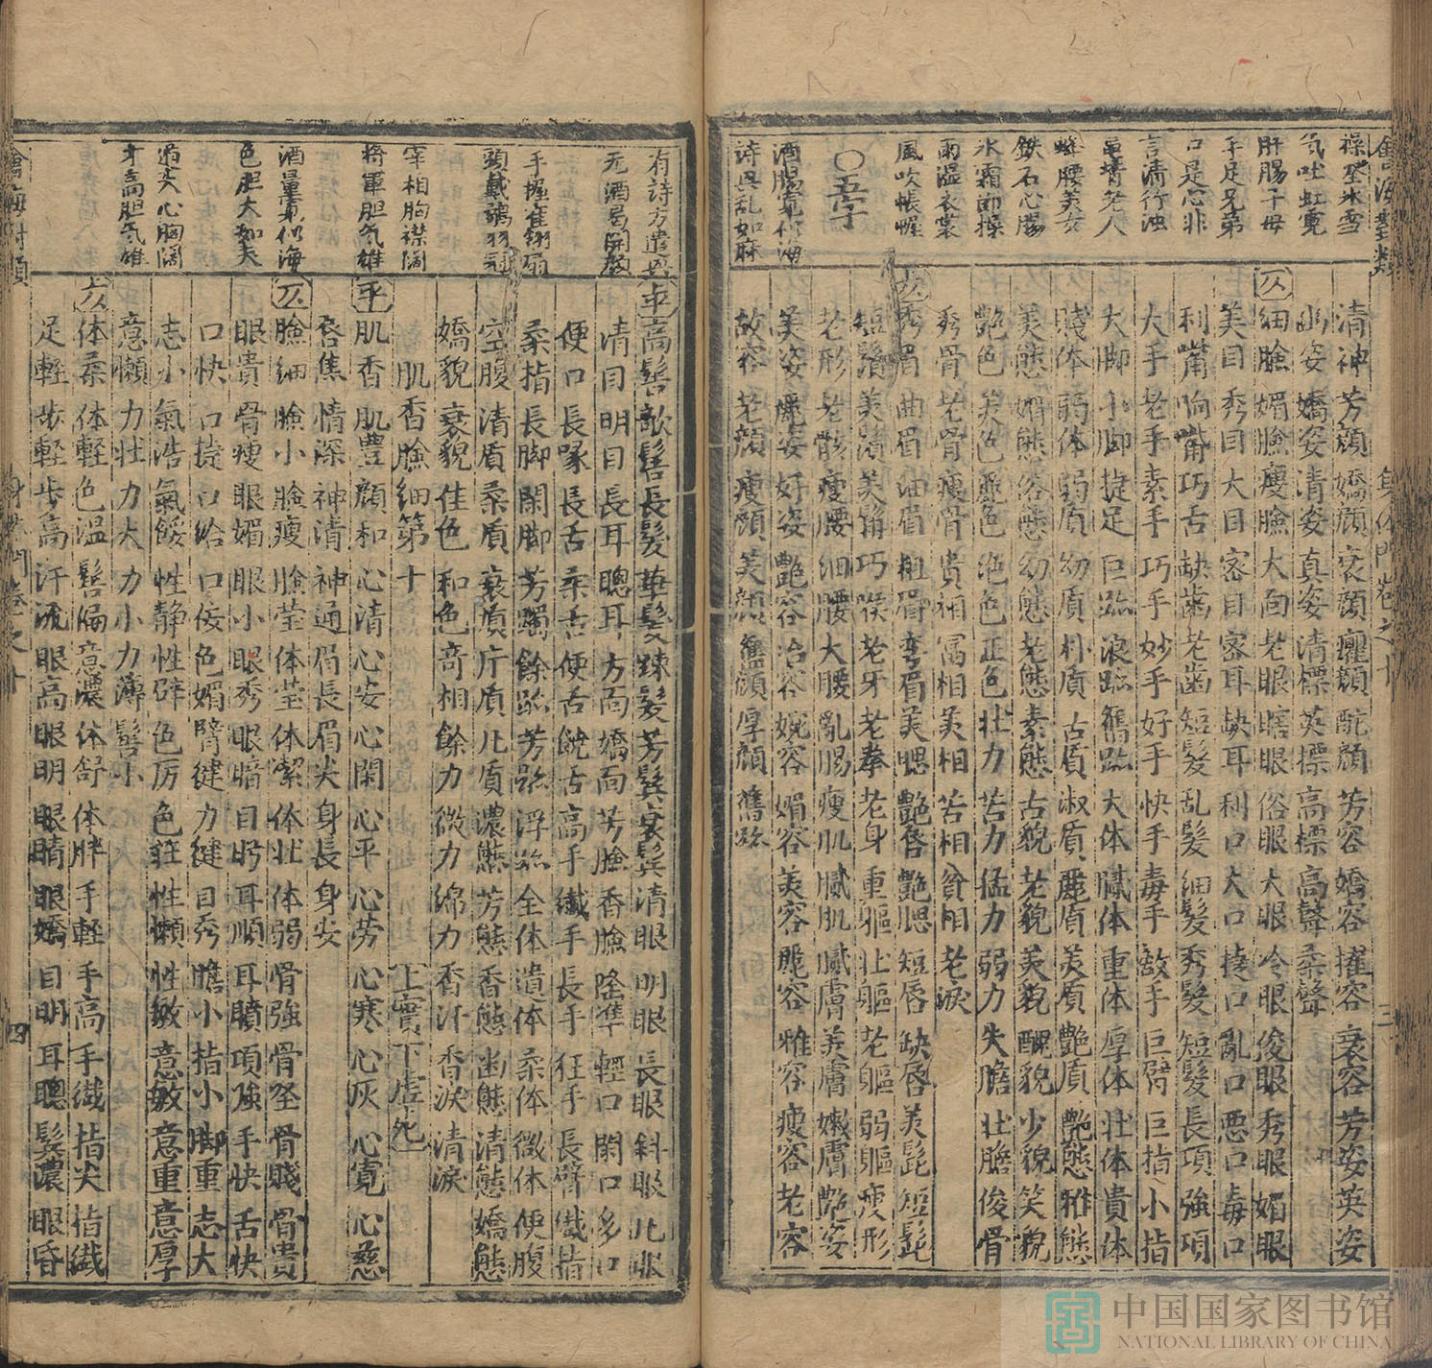 操堅氷雪
氣吐虹霓
肝腸子母
手足兄弟
口是心非
言清行浊
眉彎美人
蜂腰美女
鉄石心腸
氷霜節操
雨温衣裳
風吹帳幄
○五字
酒腸寛似海
詩興乱如麻
清神 芳顔 嬌顔 衰顔 癯顔 酡顔 芳容 嬌容 擢容 衰容 芳姿 英姿
幽姿 嬌姿 清姿 真姿 清標 英標 高標 高聲 柔聲
仄
細臉 媚臉 瘦臉 大面 老眼 瞎眼 俗眼 大眼 冷眼 俊眼 秀眼 媚眼
美目 秀目 大目 容目 容耳 缺耳 利口 大口 捷口 亂口 悪口 毒口
利嘴 响嘴 巧舌 缺齒 老齒 短髮 乱髮 細髮 秀髮 短髮 長項 強項
大手 老手 素手 巧手 妙手 好手 快手 毒手 敵手 巨臂 巨指 小指
大脚 小脚 捷足 巨跡 浪跡 舊跡 大体 膩体 重体 厚体 壮体 貴体
賤体 弱体 弱質 幼質 朴質 古質 淑質 麗質 美質 艶質 艶態 雅態
美態 媚態 容態 幼態 老態 素態 古貌 老貌 美貌 醜貌 少貌 笑貌
艶色 美色 麗色 絶色 正色 壮力 苦力 猛力 弱力 失膽 壮膽 俊骨
秀骨 老骨 瘦骨 貴相 富相 美相 苦相 貧相 老淚
秀眉 曲眉 油眉 粗眉 弯眉 美腮 艶唇 艶腮 短唇 缺唇 美髭 短髭
短鬚 美鬚 美鬢 巧喉 老牙 老拳 老身 重軀 壮軀 老軀 弱軀 瘦形
老形 老骸 瘦腰 細腰 大腰 亂腸 瘦肌 膩肌 膩膚 美膚 嫩膚 艶姿
美姿 麗姿 好姿 艶容 冶容 婉容 媚容 美容 麗容 雅容 瘦容 老容
故容 老顔 瘦顔 美顔 舊顔 厚顔 舊跡
有詩方遣興
无酒昜開顔
手握崔翎扇
頭戴鶡羽冠
宰相胸襟闊
將軍胆氣雄
酒量寛似海
色胆大如天
滔天心胸闊
才高胆氣雄
平
高髻 歌髻 長髮 華髮 疎髮 芳鬂 衰鬂 清眼 明眼 長眼 斜眼
清目 明目 長耳 聰耳 方面 嬌面 芳臉 香臉 隆準 輕口 閑口 多口
便口 長喙 長舌 柔舌 便舌 饒舌 高手 纖手 長手 狂手 長臂 纖指
柔指 長脚 閑脚 芳躅 餘跡 芳跡 浮跡 全体 遺体 柔体 微体 便腹
空腹 清質 柔質 衰質 凡質 濃態 芳態 香態 幽態 清態 嬌態
嬌貌 衰貌 佳色 和色 奇相 餘力 微力 綿力 香汗 香淚 清淚
肌香臉細第十 上實下虚死
平
肌香 肌豊 顔和 心清 心安 心閑 心平 心劳 心寒 心灰 心寛 心慈
唇焦 情深 神清 神通 眉長 眉尖 身長 身安
仄
臉細 臉小 臉瘦 臉莹 体莹 体潔 体壮 体弱 骨強 骨堅 骨賤 骨貴
眼貴 骨瘦 眼媚 眼小 眼秀 眼暗 目盻 耳順 耳聵 項強 手快 舌快
口快 口捷 口給 口佞 色媚 臂健 力健 目秀 膽小 指小 脚重 志大
志小 氣浩 氣餒 性静 性僻 色厉 色莊 性懶 性敏 意敏 意重 意厚
意懶 力壮 力大 力小 力薄 髻小
上仄
体柔 体輕 色温 髻偏 意濃 体舒 体胖 手輕 手高 手纖 指尖 指纖
足輕 步輕 步高 汗流 眼高 眼明 眼睛 眼嬌 目明 耳聰 髮濃 眼昏
四
中国国家图书馆
NATIONAL LIBRARY OF CHINA